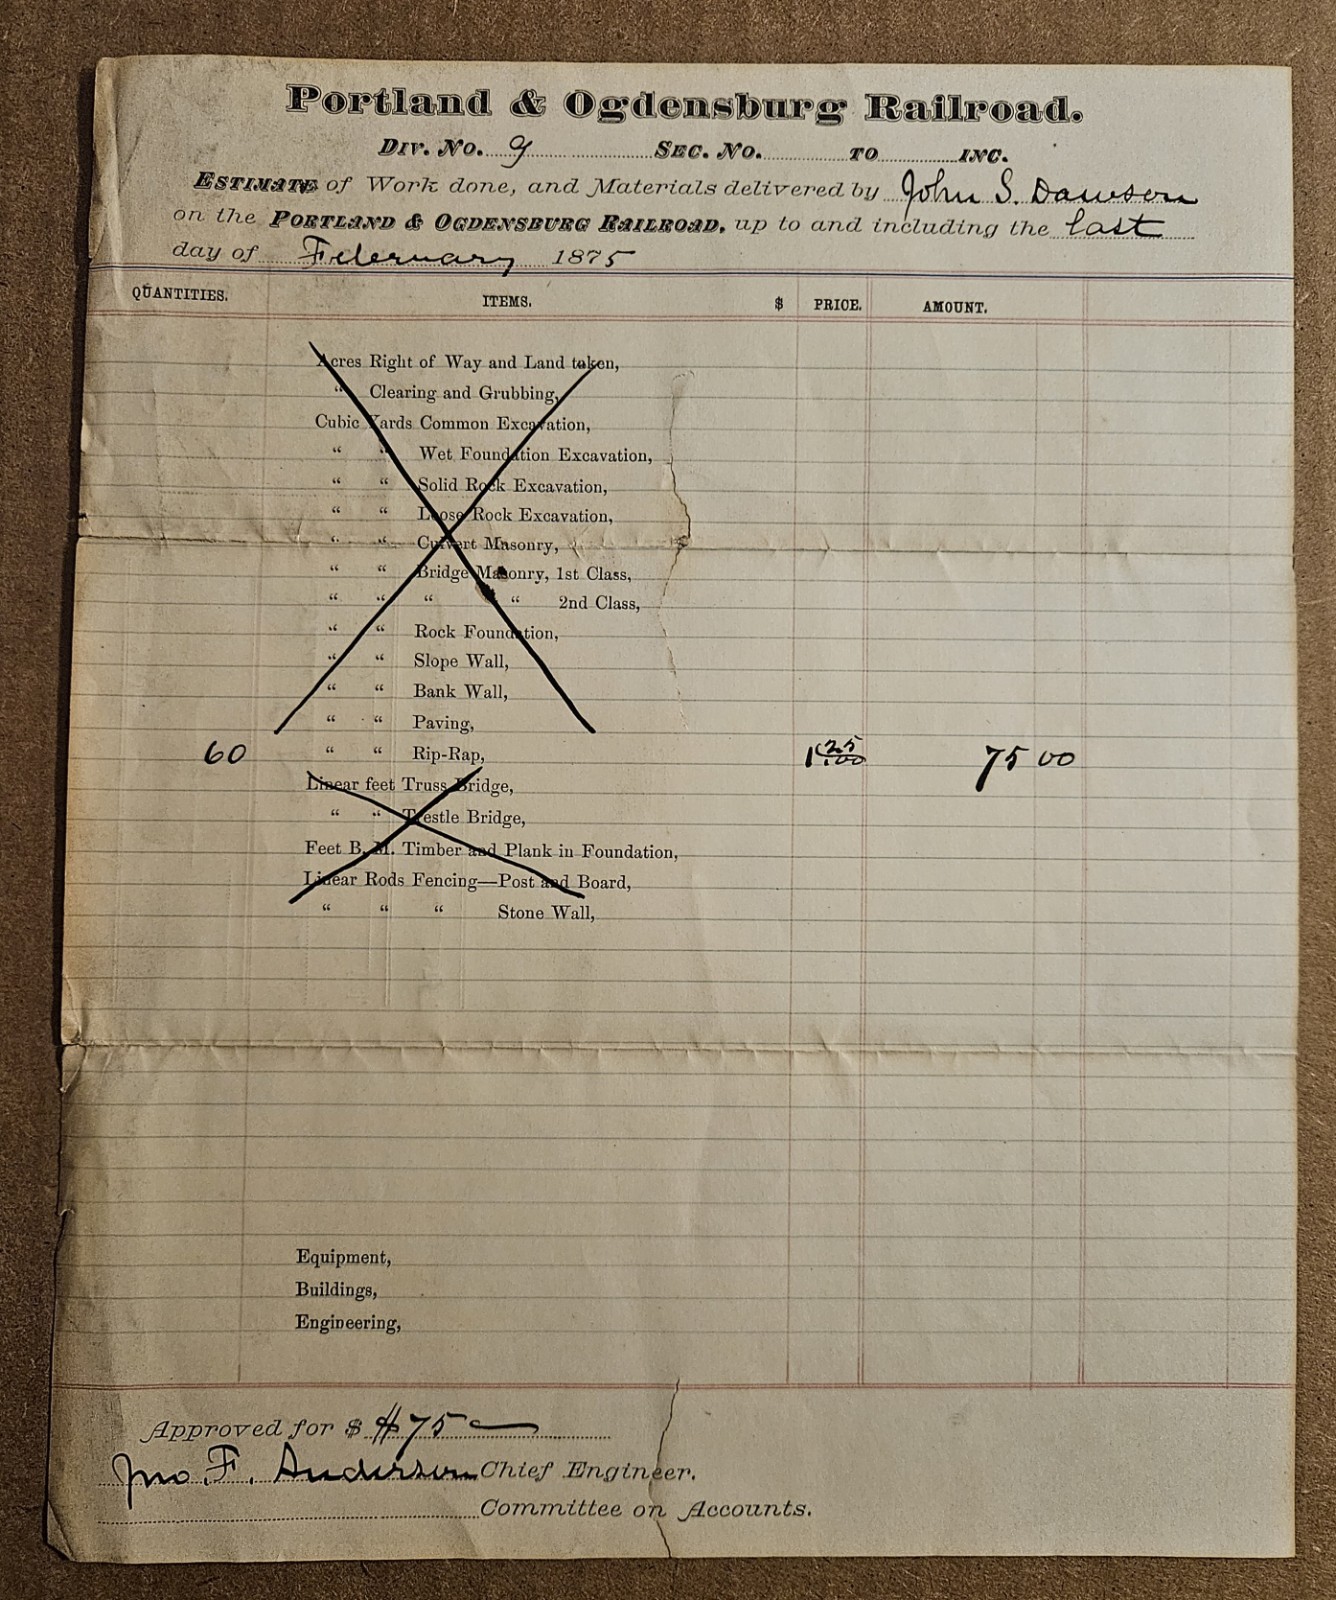 Portland & Ogdensburg Railroad.
Div. No. 9 Sec. No. to inc.
Estimate of Work done, and Materials delivered by John S. Dawson
on the Portland & Ogdensburg Railroad, up to and including the last
day of February 1875
QUANTITIES. ITEMS. $ PRICE. AMOUNT.
Acres Right of Way and Land taken,
“ Clearing and Grubbing,
Cubic Yards Common Excavation,
“ “ Wet Foundation Excavation,
“ “ Solid Rock Excavation,
“ “ Loose Rock Excavation,
“ “ Culvert Masonry,
“ “ Bridge Masonry, 1st Class,
“ “ “ “ 2nd Class,
“ “ Rock Foundation,
“ “ Slope Wall,
“ “ Bank Wall,
“ “ Paving,
60 “ “ Rip-Rap, 1 25/100 75 00
Linear feet Truss Bridge,
“ “ Trestle Bridge,
Feet B. M. Timber and Plank in Foundation,
Linear Rods Fencing—Post and Board,
“ “ “ Stone Wall,
Equipment,
Buildings,
Engineering,
Approved for $ $75
Jno. F. Anderson Chief Engineer.
Committee on Accounts.